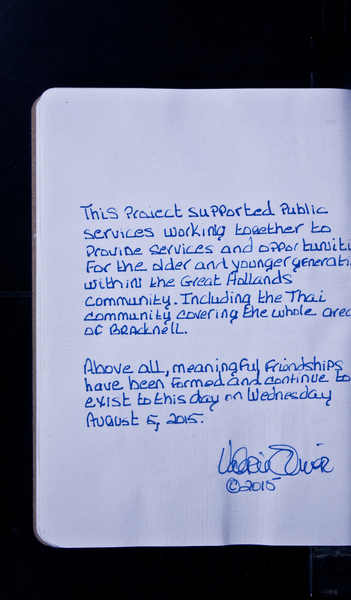 This Project supported Public
services working together to
Provide services and opportuniti
For the older and younger generati
within the Great Hollands
community. Including the Thai
community covering the whole area
of Bracknell.
Above all, meaningful Friendships
have been formed and continue to
exist to this day on Wednesday
August 5, 2015.
©2015